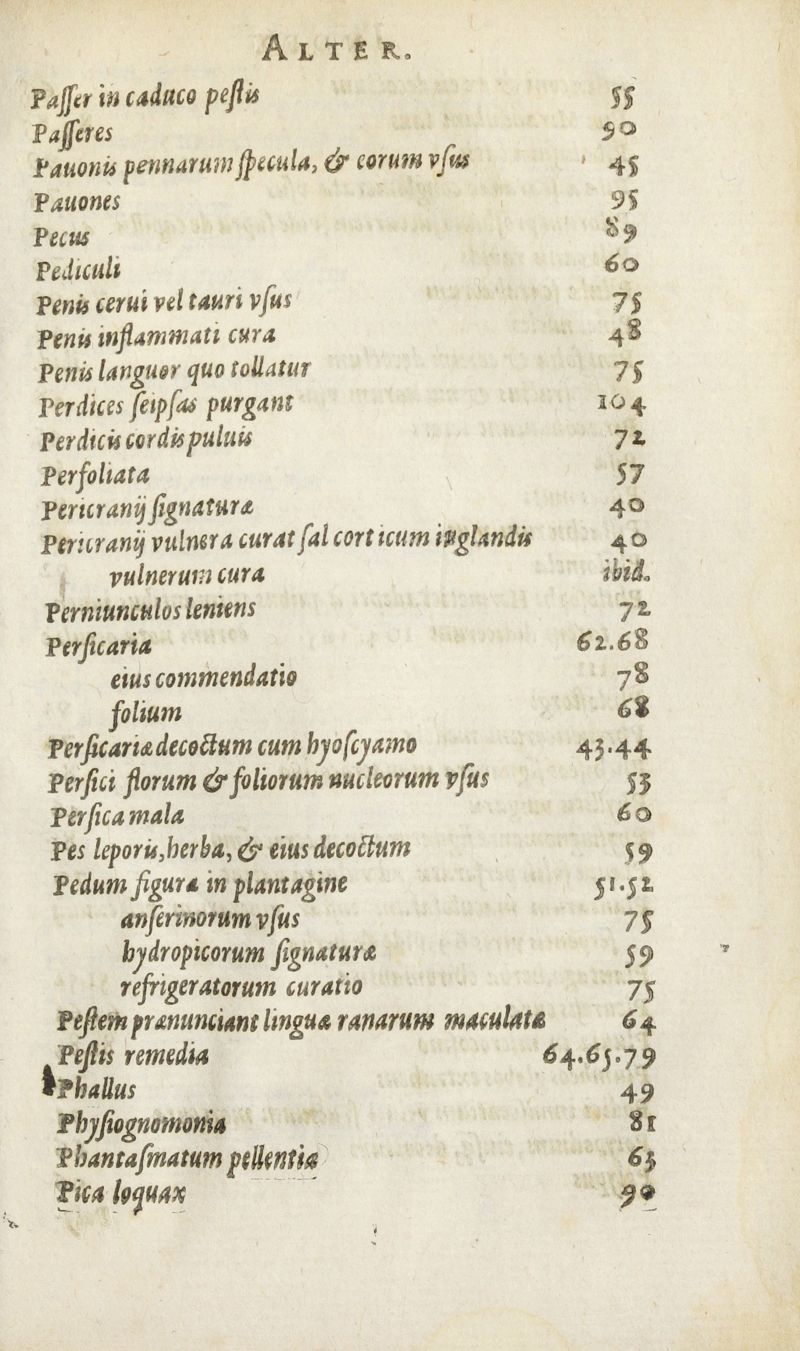 ALTER.
Paſſer in caduco peſtis 55
Paſſeres 90
Pauonis pennarum ſpecula, & eorum vſus 45
Pauones 95
Pecus 89
Pediculi 60
Penis cerui vel tauri vſus 75
Penis inflammati cura 48
Penis languor quo tollatur 75
Perdices ſeipſas purgant 104
Perdicis cordis puluis 72
Perfoliata 57
Pericranij ſignaturæ 40
Pericranij vulnera curat ſal corticum iuglandis 40
vulnerum cura ibid.
Perniunculos leniens 72
Perſicaria 62.68
eius commendatio 78
folium 68
Perſicariæ decoctum cum hyoſcyamo 43.44
Perſici florum & foliorum nucleorum vſus 53
Perſica mala 60
Pes leporis, herba, & eius decoctum 59
Pedum figura in plantagine 51.52
anſerinorum vſus 75
hydropicorum ſignaturæ 59
refrigeratorum curatio 75
Peſtem prænunciant linguæ ranarum maculatæ 64
Peſtis remedia 64.65.79
Phallus 49
Phyſiognomonia 81
Phantaſmatum pellentia 63
Pica loquax 90